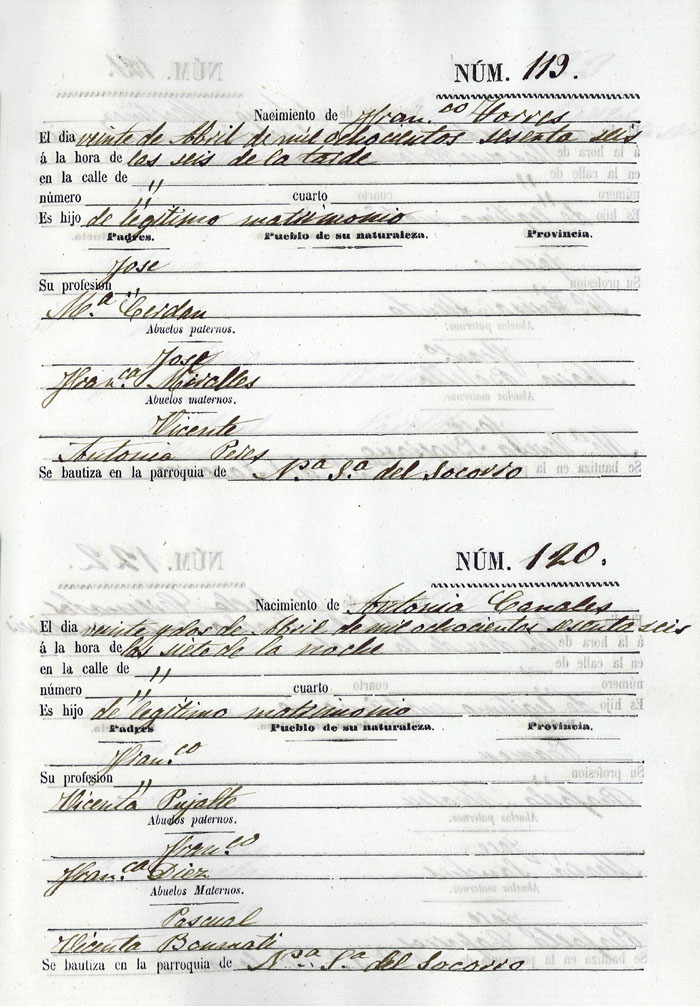 NÚM. 119.
Nacimiento de Fran.co Torres
El dia veinte de Abril de mil ochocientos sesenta seis
á la hora de las seis de la tarde
en la calle de "
número " cuarto
Es hijo de legitimo matrimonio
Padres. Pueblo de su naturaleza. Provincia.
Jose
Su profesion "
M.a Cerdan
Abuelos paternos.
Jose
Fran.ca Miralles
Abuelos maternos.
Vicente
Antonia Peres
Se bautiza en la parroquia de N.a S.a del Socorro
NÚM. 120.
Nacimiento de Antonia Canales
El dia veinte y dos de Abril de mil ochocientos sesenta seis
á la hora de las siete de la noche
en la calle de "
número " cuarto
Es hijo de legitimo matrimonio
Padres Pueblo de su naturaleza. Provincia.
Fran.co
Su profesion "
Vicenta Pujalte
Abuelos paternos.
Fran.co
Fran.ca Diez
Abuelos Maternos.
Pascual
Vicenta Boumati
Se bautiza en la parroquia de N.a S.a del Socorro